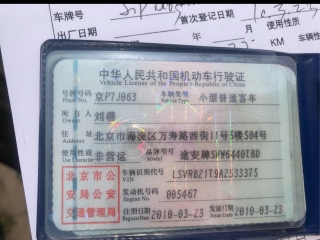 车牌号
首次登记日期
使用性质
出厂日期
KM
车辆
中华人民共和国机动车行驶证
Vehicle License of the People's Republic of China
号牌号码 京P7J063 车辆类型 小型普通客车
Plate No. Vehicle Type
所有人 刘蓓
Owner
住址 北京市海淀区万寿路西街11号3楼504号
Address
使用性质 非营运 品牌型号 途安牌SVW6440TBD
北京市公安局公安交通管理局
车辆识别代号 LSVRB21T9A2533375
VIN
发动机号码 005467
Engine No.
注册日期 2010-03-23 发证日期 2010-03-23
Register Date Issue Date